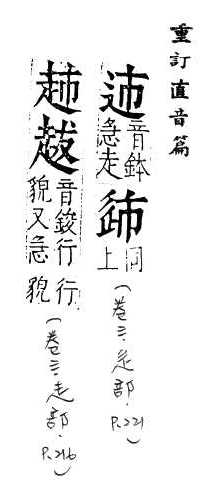 重訂直音篇
音鉢
急走
同
上
(卷三·辵部·P.221)
音鋑行行
貌又急貌
(卷三·走部·P.216)